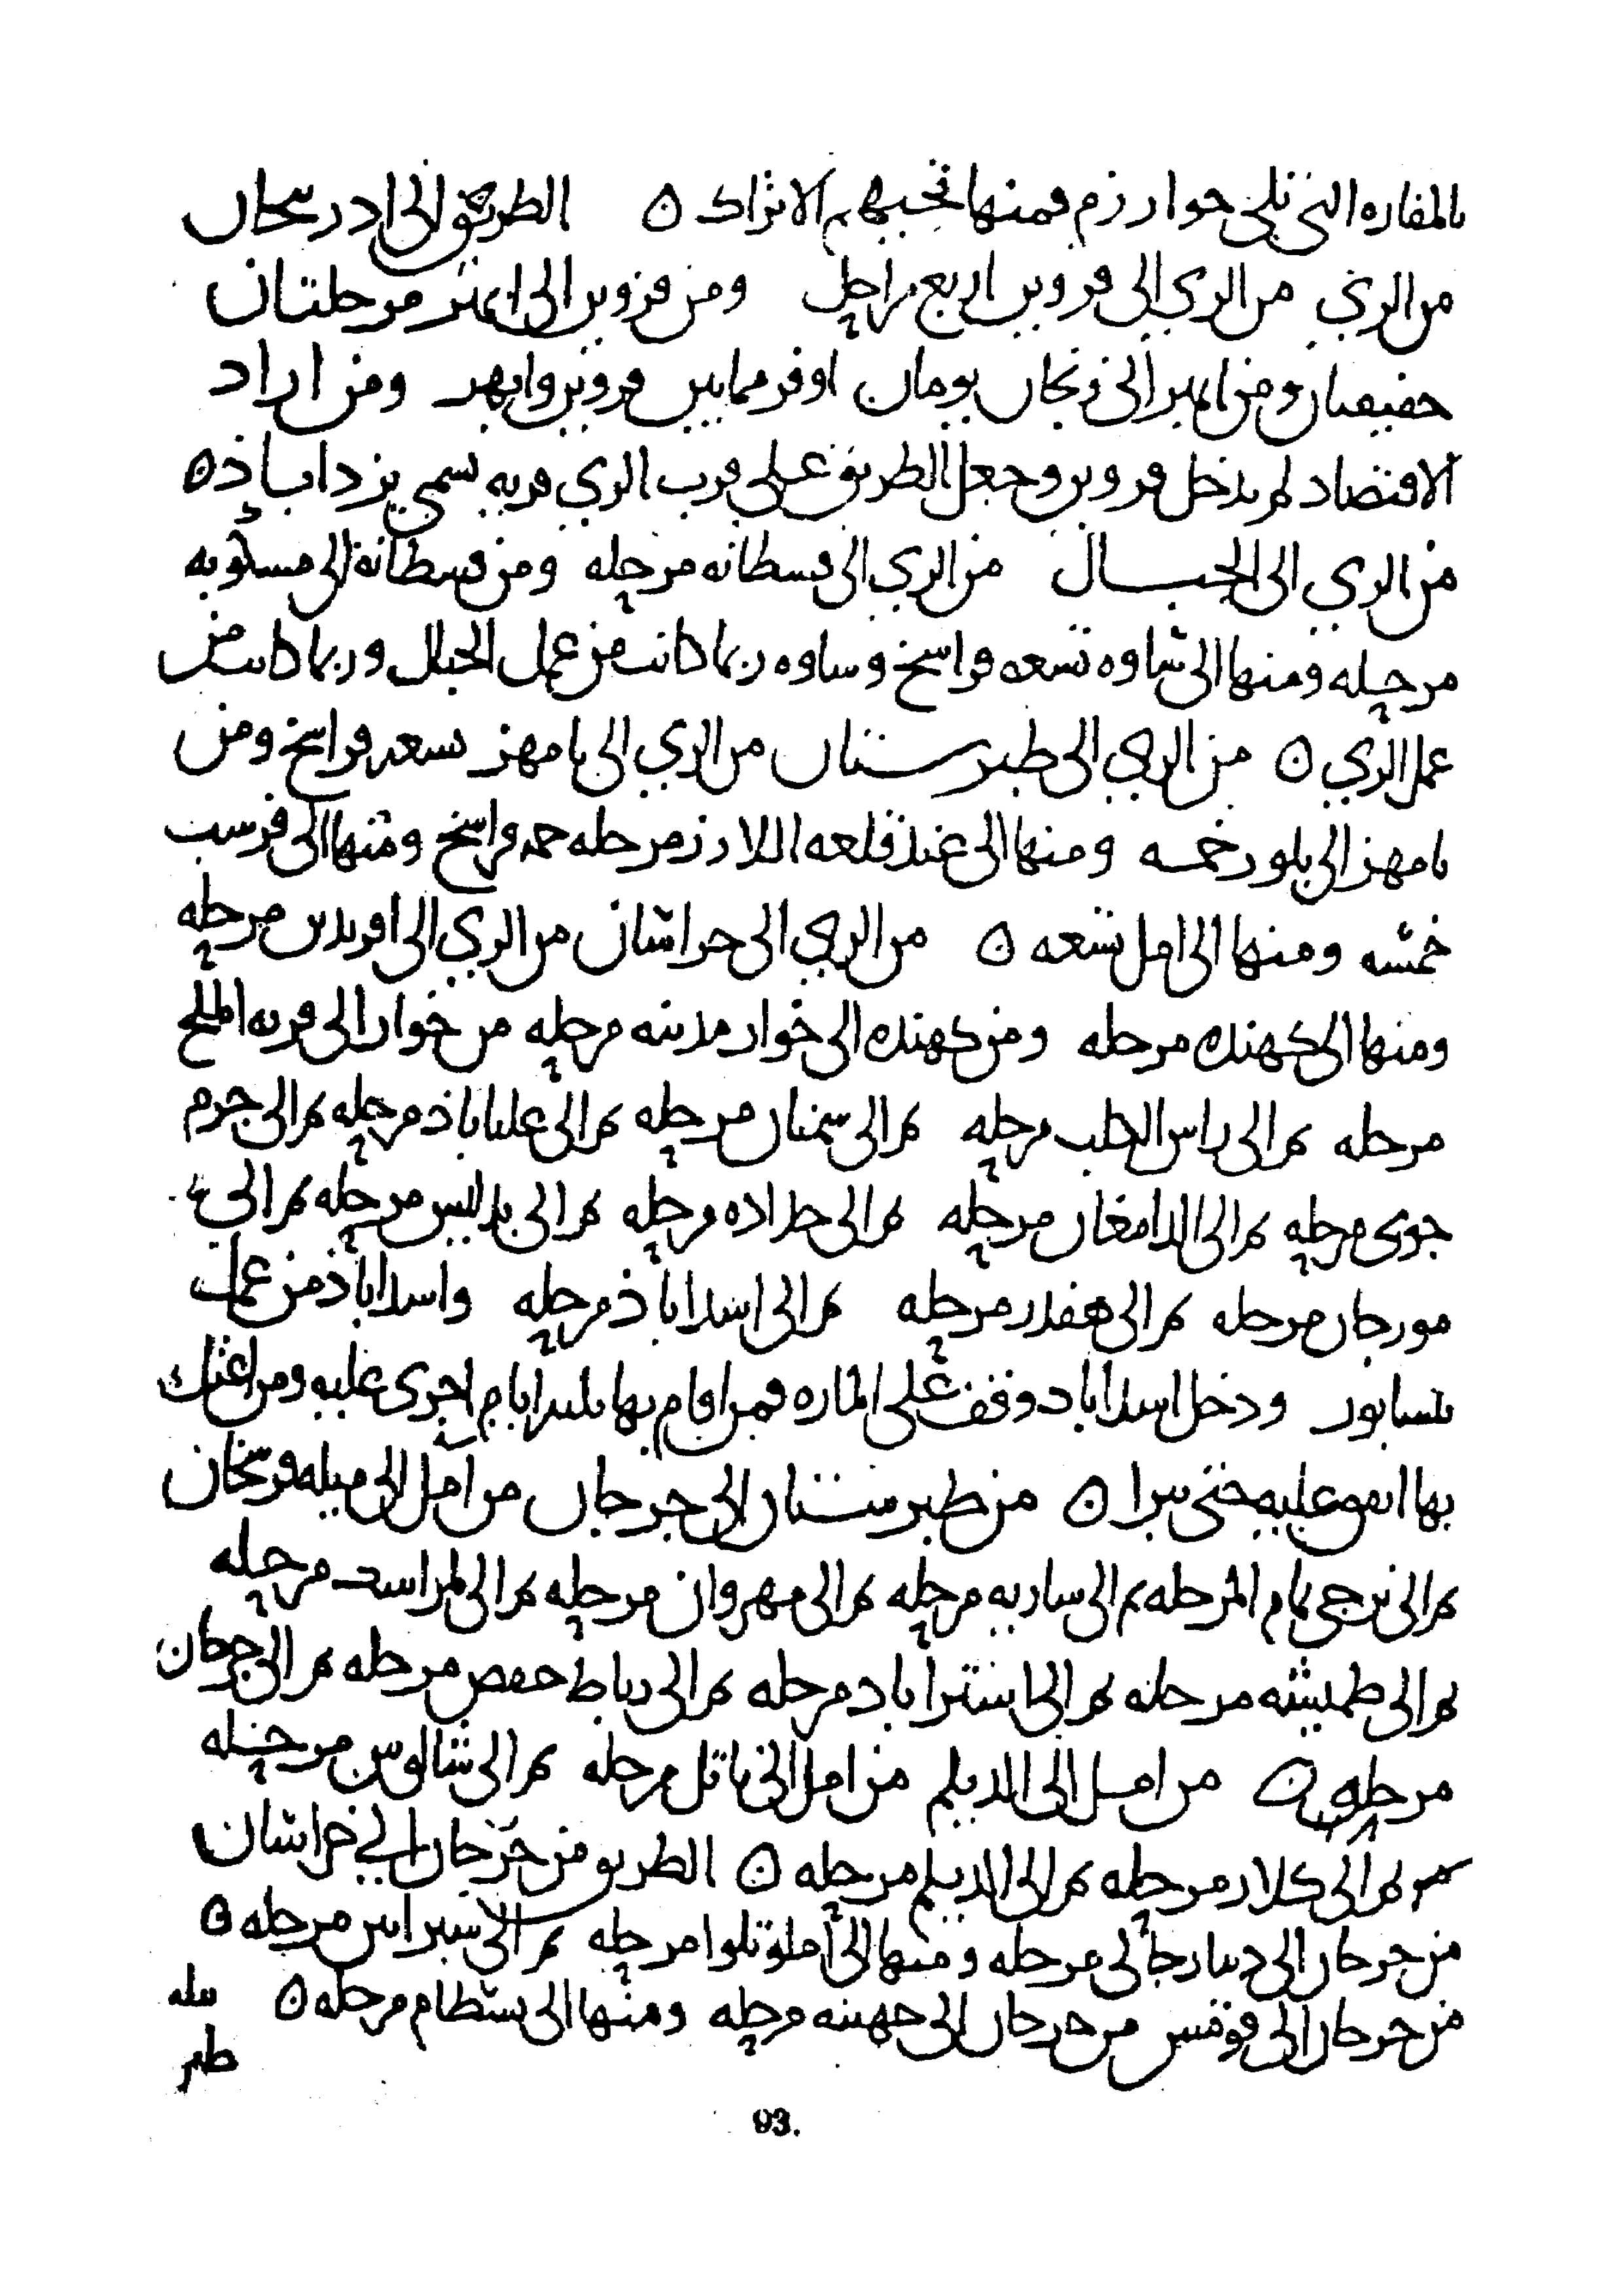 بالمفازه التي تلي خوارزم فمنها تخيبهم الاتراك ه الطريق الى ادربيجان
من الري من الري الى قزوين اربع مراحل ومن قزوين الى ابهر مرحلتان
خفيفتان ومن ابهر الى زنجان يومان اوفر مما بين قزوين وابهر ومن اراد
الاقتصاد لم يدخل قزوين وجعل الطريق على قرب الري قريه تسمى يزداباذ ه
من الري الى الجبـال من الري الى قسطانه مرحله ومن قسطانة الى مسكويه
مرحله ومنها الى ساوه تسعه فراسخ وساوه ربما كانت من عمل الجبال وربما كانت من
عمل الري ه من الري الى طبرستان من الري الى بامهر تسعه فراسخ ومن
بامهر الى بلور خمسه ومنها الى عند قلعه اللارز مرحله خمسه فراسخ ومنها الى فرست
خمسه ومنها الى امل تسعه ه من الري الى خراسان من الري الى افريدين مرحله
ومنها الى كهنده مرحله ومن كهنده الى خوار مدينه مرحله من خوار الى قريه الملح
مرحله ثم الى راس الكلب مرحله ثم الى سمنان مرحله ثم الى علياباذ مرحله ثم الى جرم
جوى مرحله ثم الى الدامغان مرحله ثم الى حداده مرحله ثم الى بدليس مرحله ثم الى
مورجان مرحله ثم الى هفدر مرحله ثم الى اسداباذ مرحله واسداباذ من عمل
نيسابور ودخل اسداباد وقف على الماره فمن اقام بها ثلثه ايام اجرى عليه ومن اعتل
بها انفق عليه حتى يبرا ه من طبرستان الى جرجان من آمل الى ميله فرسخان
ثم الى ترجى تمام المرحله ثم الى ساريه مرحله ثم الى مهروان مرحله ثم الى لمراسك مرحله
ثم الى طميشه مرحله ثم الى استراباد مرحله ثم الى رباط حفص مرحله ثم الى جرجان
مرحله ه من امـل الى الديلم من امل الى ناتل مرحله ثم الى شالوس مرحله
ثم الى كلار مرحله ثم الى الديلم مرحله ه الطريق من جرجان الى خراسان
من جرجان الى دينارجالى مرحله ومنها الى املوتلوا مرحله ثم الى اسبراين مرحله ه
من جرجان الى قومس من جرجان الى جهينه مرحله ومنها الى بسطام مرحله ه
93.